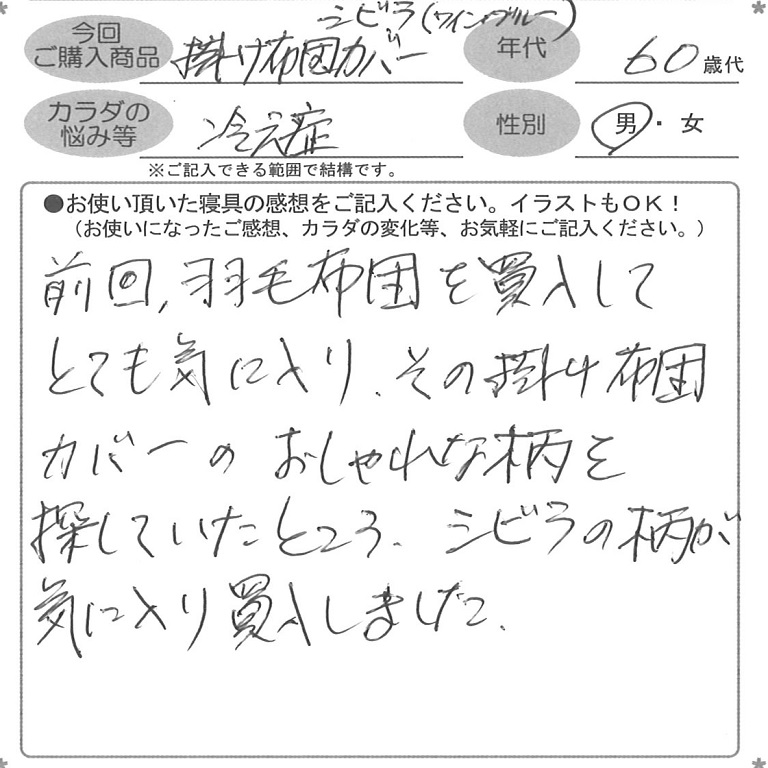 シビラ(ワイン・ブルー)
今回
ご購入商品
掛け布団カバー
年代
60歳代
カラダの
悩み等
冷え症
性別
男・女
※ご記入できる範囲で結構です。
●お使い頂いた寝具の感想をご記入ください。イラストもOK!
(お使いになったご感想、カラダの変化等、お気軽にご記入ください。)
前回,羽毛布団を買入して
とても気に入り、その掛け布団
カバーのおしゃれな柄を
探していたところ、シビラの柄が
気に入り買入しました。